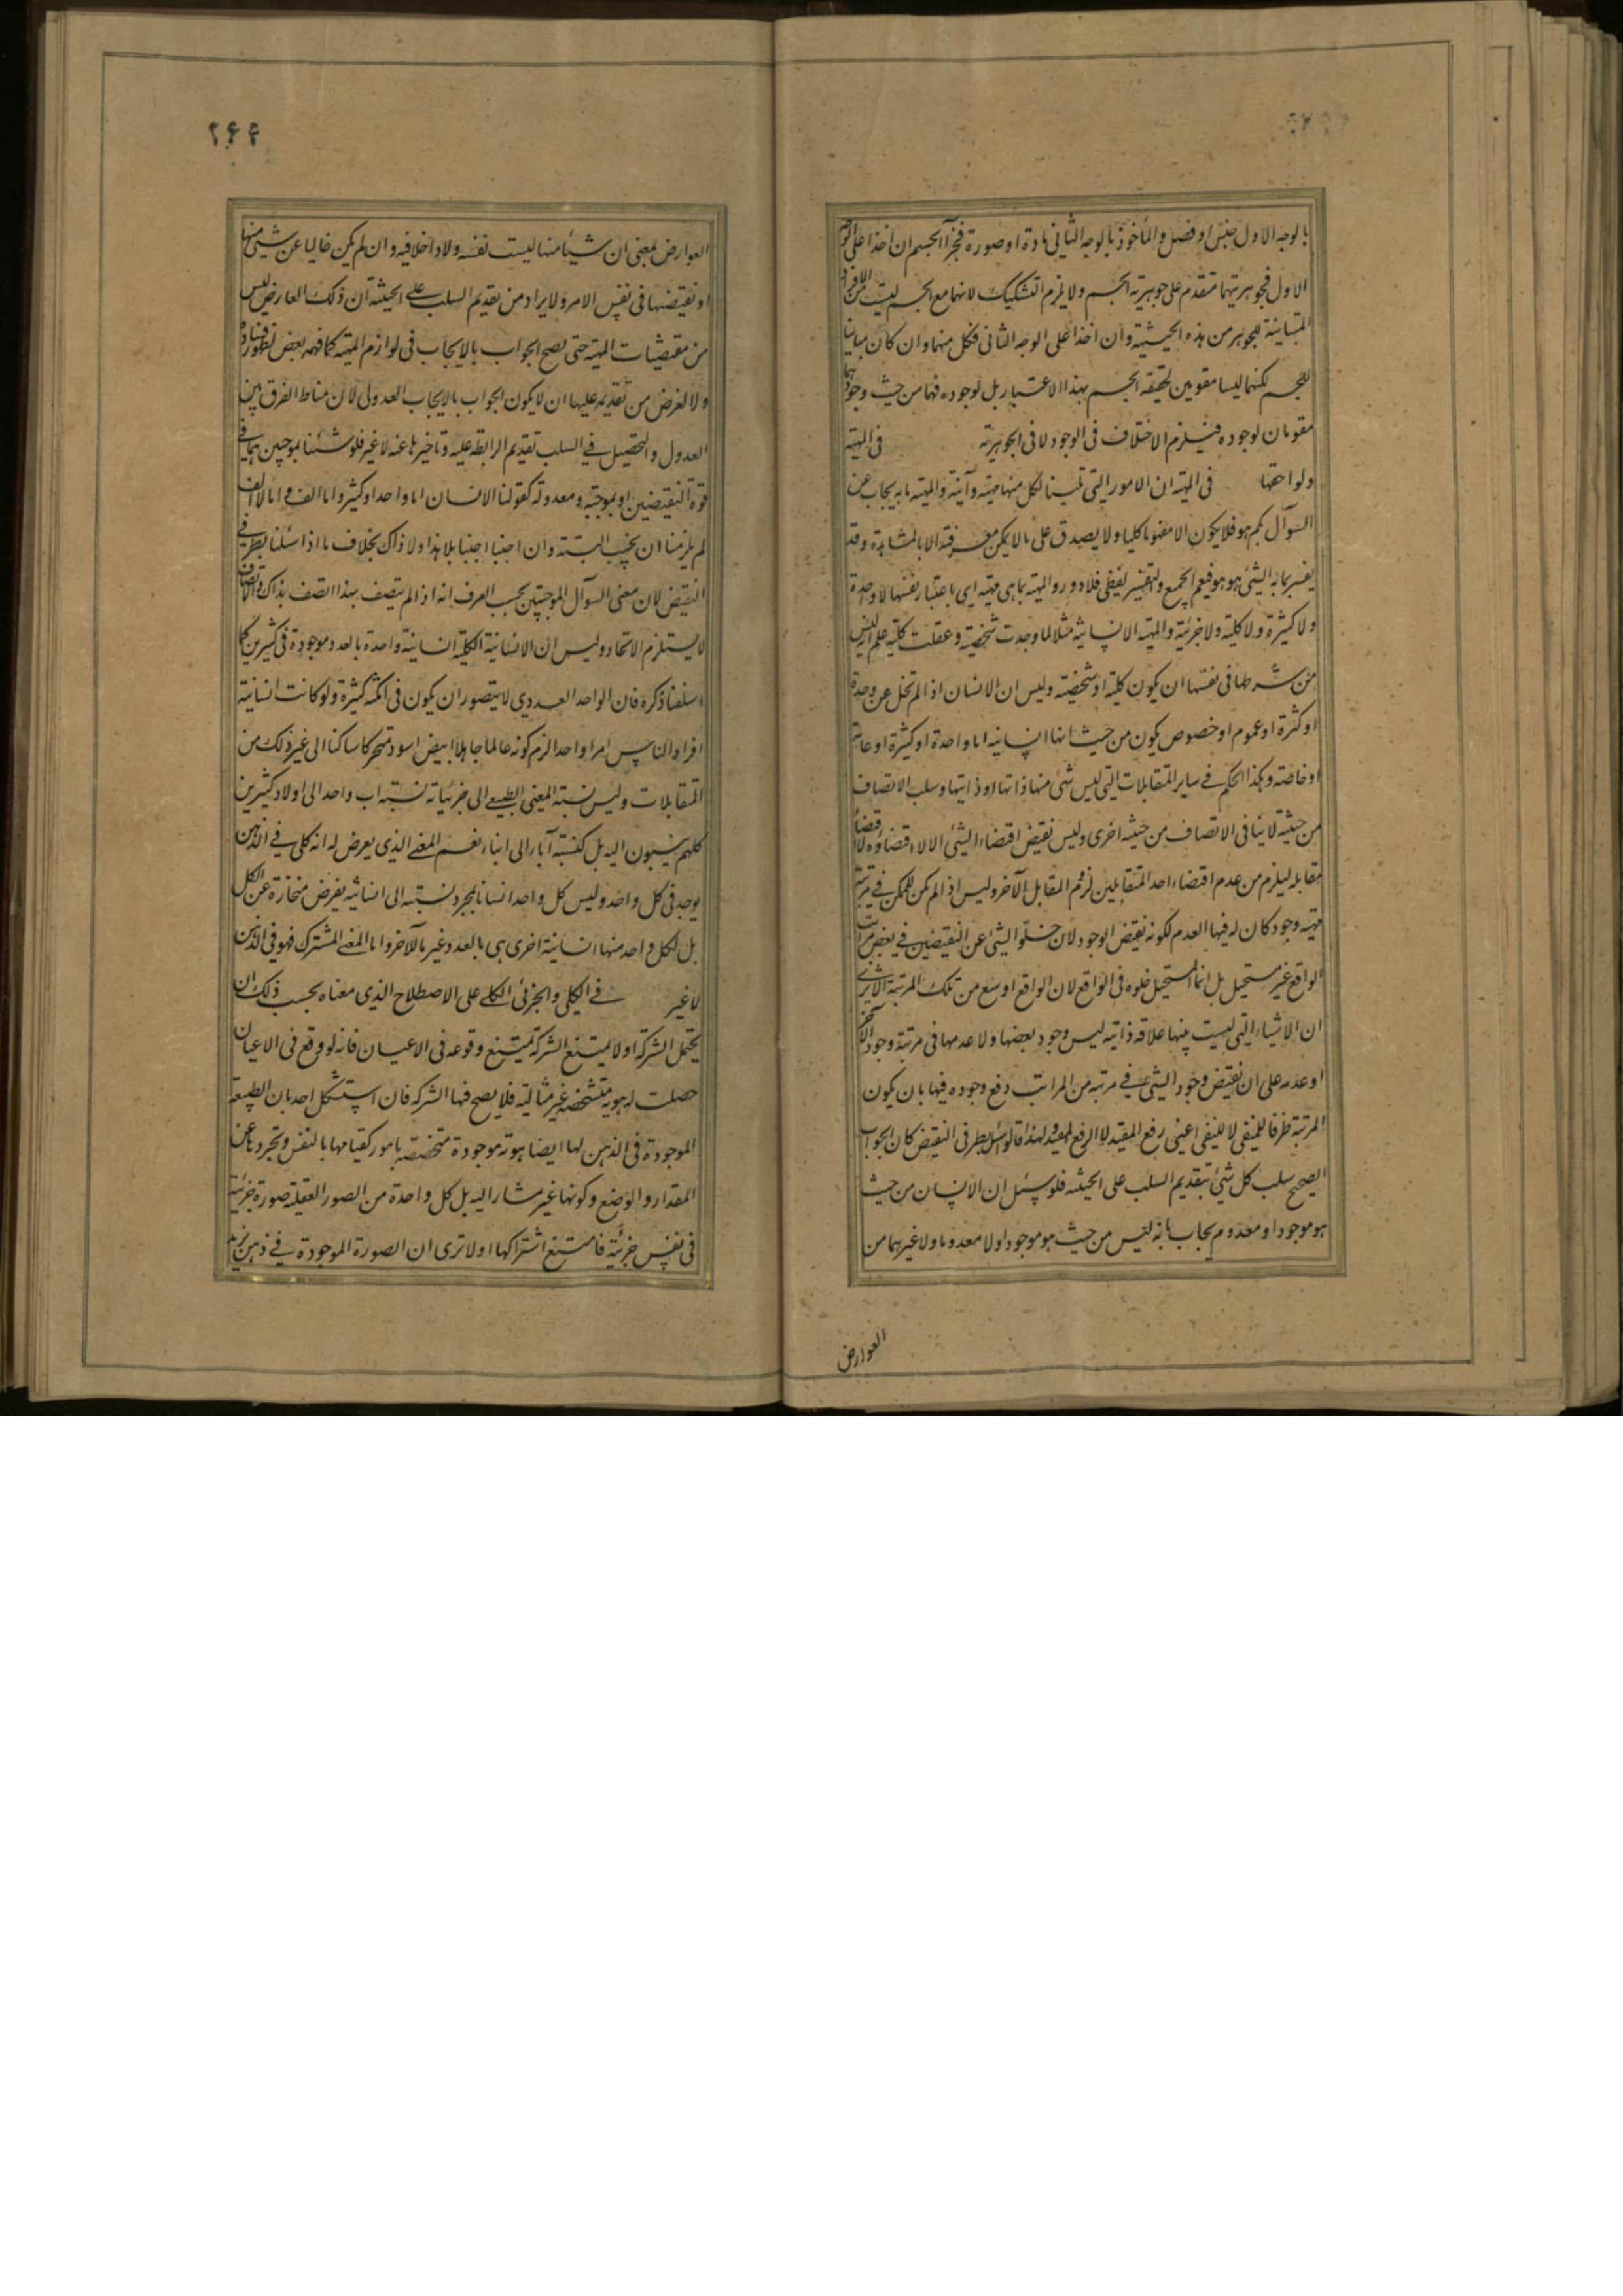 بالوجه الاول جنس او فصل والمأخوذ بالوجه الثانی مادة او صورة فجزءا الجسم ان اخذا علی الوجه
الاول فجوهریتهما متقدم علی جوهریة الجسم ولا یلزم التشکیک لانهما مع الجسم لیست من الافراد
المتباینة للجوهر من هذه الحیثیة وان اخذا علی الوجه الثانی فکل منهما وان کان مباینا
للجسم لکنهما لیسا مقومین لحقیقة الجسم بهذا الاعتبار بل لوجوده فهما من حیث وجودهما
مقومان لوجوده فیلزم الاختلاف فی الوجود لا فی الجوهریة فی المهیة
ولواحقها فی المهیة ان الامور التی تلینا لکل منها مهیة وآنیة والمهیة ما به یجاب عن
السوآل بکم هو فلا یکون الا مفهوما کلیا ولا یصدق علی ما لا یمکن معرفته الا بالمشاهدة وقد
یفسر بما به الشئ هو هو فیعم الجمیع والتفسیر لفظی فلا دور والمهیة بما هی مهیة ای باعتبار نفسها لا واحدة
ولا کثیرة ولا کلیة ولا جزئیة والمهیة الانسانیة مثلا لما وجدت شخصیة وعقلت کلیة علم انه لیس
من شرطها فی نفسها ان یکون کلیة او شخصیة ولیس ان الانسان اذا لم تخل عن وحدة
او کثرة او عموم او خصوص یکون من حیث انها انسانیه اما واحدة او کثیرة او عامة
او خاصة وهکذا الحکم فی سایر المتقابلات التی لیس شئ منها ذاتها او ذاتیها وسلب الاتصاف
من حیثیة لا ینافی الاتصاف من حیثیة اخری ولیس نقیض اقتضاء الشئ الا لا اقتضاؤه لا اقتضاء
مقابله لیلزم من عدم اقتضاء احد المتقابلین لزوم المقابل الآخر ولیس اذا لم یکن للممکن فی مرتبة
مهیته وجود کان له فیها العدم لکونه نقیض الوجود لان خلو الشئ عن النقیضین فی بعض مراتب
الواقع غیر مستحیل بل انما المستحیل خلوه فی الواقع لان الواقع اوسع من تلک المرتبة الا تری
ان الاشیاء التی لیست بینها علاقة ذاتیه لیس وجود بعضها ولا عدمها فی مرتبة وجود الآخر
او عدمه علی ان نقیض وجود الشئ فی مرتبه من المراتب رفع وجوده فیها بان یکون
المرتبة ظرفا للمنفی لا للنفی اعنی رفع المقید لا الرفع المقید ولهذا قالوا لو سئل بطرفی النقیض کان الجواب
الصحیح سلب کل شئ بتقدیم السلب علی الحیثیه فلو سئل ان الانسان من حیث
هو موجود او معدوم یجاب بانه لیس من حیث هو موجودا ولا معدوما ولا غیرهما من
العوارض
۲۶۶
العوارض بمعنی ان شیئا منها لیست نفسه ولا داخلا فیه وان لم یکن خالیا عن شئ منها
او نقیضها فی نفس الامر ولا یراد من تقدیم السلب علی الحیثیه ان ذلک العارض لیس
من مقتضیات المهیة حتی یصح الجواب بالایجاب فی لوازم المهیة کما فهمه بعض وظهور فساده
ولا الغرض من تقدیمه علیها ان لا یکون الجواب بالایجاب العدولی لان مناط الفرق بین
العدول والتحصیل فی السلب تقدیم الرابطة علیه وتاخیرها عنه لا غیر فلو سئلنا بموجبین هما فی
قوة النقیضین او بموجبة ومعدوله کقولنا الانسان اما واحد او کثیر واما الف واما لا الف
لم یلزمنا ان نجیب البتة وان اجبنا اجبنا بلا هذا ولا ذاک بخلاف ما اذا سئلنا بطرفی
النقیض لان معنی السوآل بالموجبتین بحسب العرف انه اذا لم یتصف بهذا اتصف بذاک والاتصاف
لا یستلزم الاتحاد ولیس ان الانسانیة الکلیة انسانیة واحدة بالعدد موجودة فی کثیرین کما
اسلفنا ذکره فان الواحد العددی لا یتصور ان یکون فی امکنة کثیرة ولو کانت انسانیة
افراد الناس امرا واحدا لزم کونه عالما جاهلا ابیض اسود متحرکا ساکنا الی غیر ذلک من
المتقابلات ولیس نسبة المعنی الطبیعی الی جزئیاته نسبة اب واحد الی اولاد کثیرین
کلهم ینسبون الیه بل کنسبة آباء الی ابناء نعم المعنی الذی یعرض له انه کلی فی الذهن
یوجد فی کل واحد ولیس کل واحد انسانا بمجرد نسبته الی انسانیه یفرض منحازة عن الکل
بل لکل واحد منها انسانیة اخری هی بالعدد غیر ما للآخر واما المعنی المشترک فهو فی الذهن
لا غیر فی الکلی والجزئی الکلی علی الاصطلاح الذی معناه بحسب ذلک ان
یحتمل الشرکة او لا یمتنع الشرکة یمتنع وقوعه فی الاعیان فانه لو وقع فی الاعیان
حصلت له هویة متشخصة غیر مثالیة فلا یصح فیها الشرکه فان استشکل احد بان الطبیعة
الموجودة فی الذهن لها ایضا هویة موجودة متخصصة بامور کقیامها بالنفس وتجردها عن
المقدار والوضع وکونها غیر مشار الیه بل کل واحدة من الصور العقلیة صورة جزئیة
فی نفس جزئیة فامتنع اشتراکها اولا تری ان الصورة الموجودة فی ذهن زید